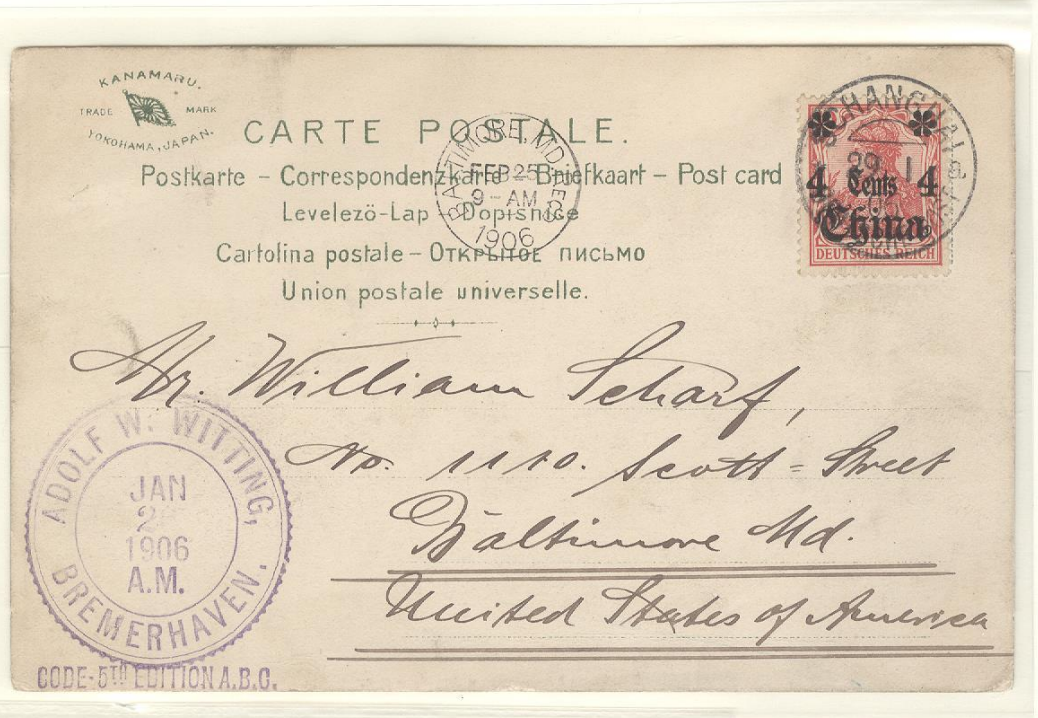 KANAMARU.
TRADE MARK
YOKOHAMA, JAPAN.
CARTE POSTALE.
Postkarte – Correspondenzkarte – Briefkaart – Post card
Levelező-Lap – Dopisnice
Cartolina postale – Открытое письмо
Union postale universelle.
BALTIMORE, MD. REC'D
FEB 25
9 – AM
1906
SHANGHAI
29 1
4 Cents 4
China
DEUTSCHES REICH
Mr. William Scharf,
No. 1110. Scott = Street
Baltimore Md.
United States of America
ADOLF W. WITTING,
JAN
1906
A.M.
BREMERHAVEN.
CODE-5TH EDITION A.B.C.